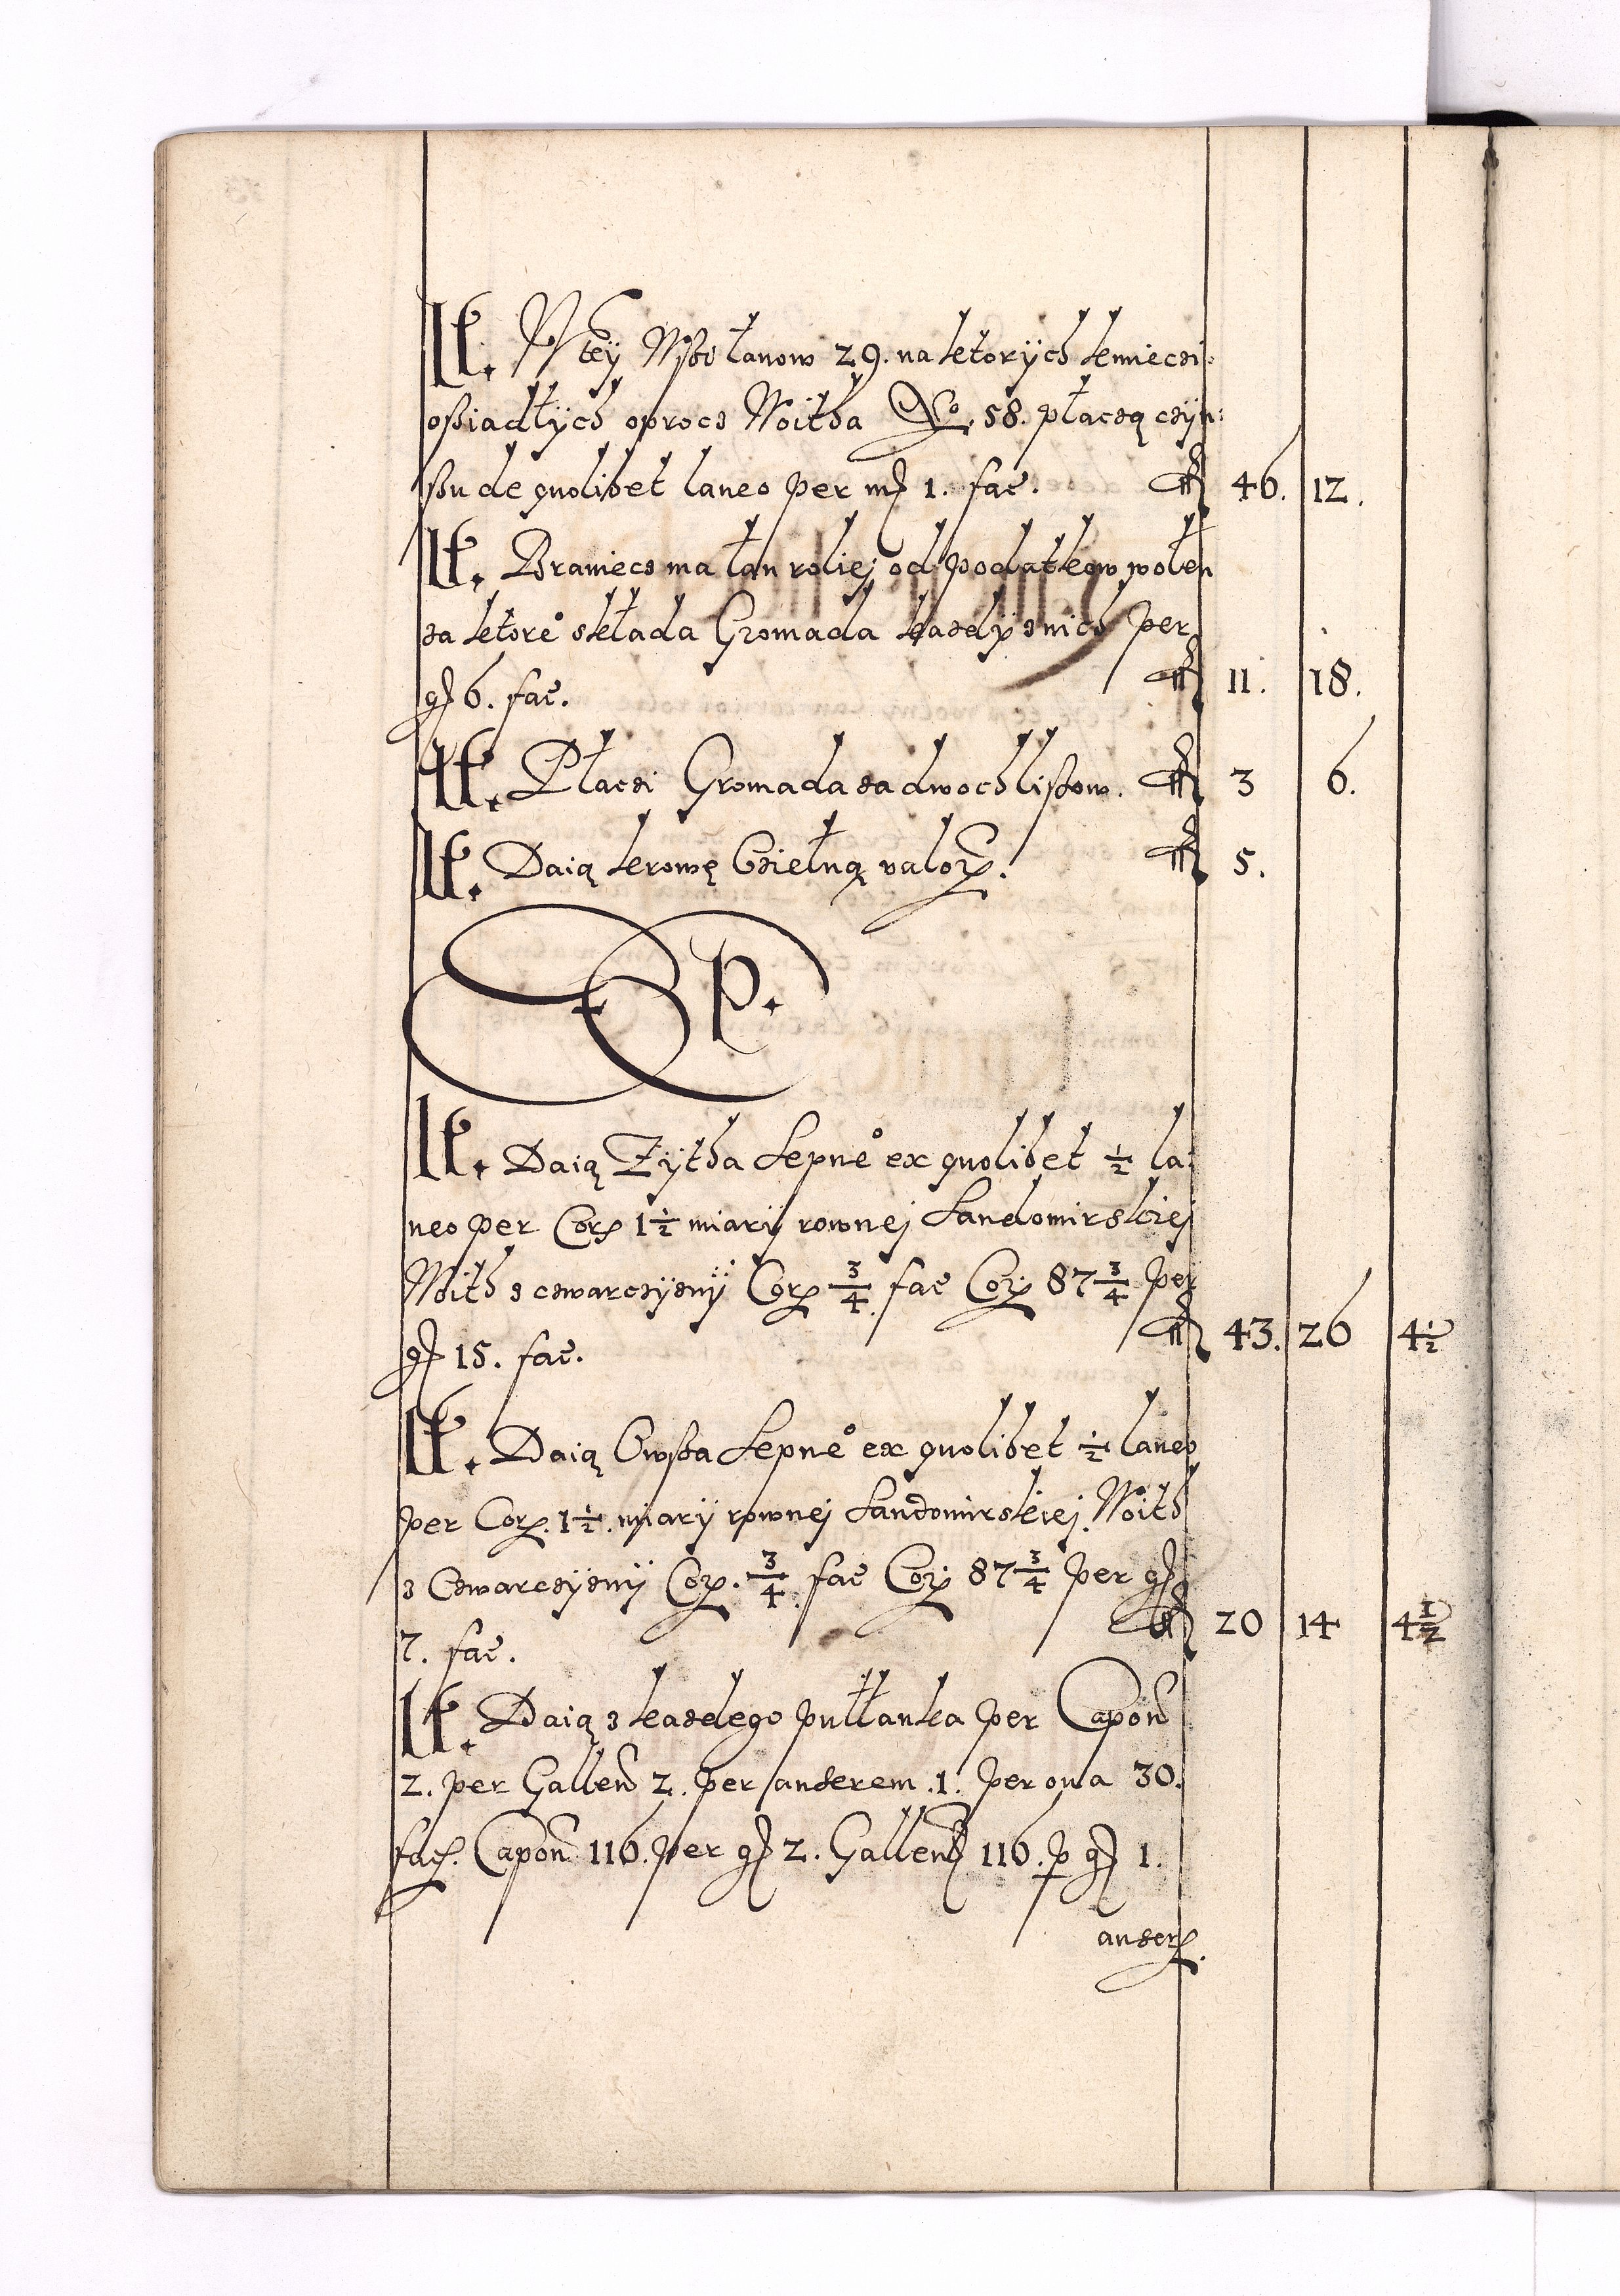 It. W tey Wsi łanow 29. na ktorych kmieczi
oßiadłych oprocz Woitha No. 58. płaczą czyn:
ßu de quolibet laneo per mr 1. fac. fl 46. 12.
It. Wraniecz ma łan roliej od podatkow wolen
za ktore składa Gromada kazdy z nich per
gr 6. fac. fl 11. 18.
It. Płaczi Gromada za dwoch lissow. fl 3 6.
It. Daią krowę Czielną valor. fl 5.
P.
It. Daią Zytha Sepne ex quolibet ½ la:
neo per Cor 1½ miary rownej Sandomirskiej
Woith z czwarczyzny Cor ¾ fac Cor 87¾ per
gr 15. fac. fl 43. 26 4½
It. Daią Owssa Sepne ex quolibet ½ laneo
per Cor. 1½. miary rownej Sandomirskiej. Woith
z Czwarczyzny Cor. ¾. fac Cor 87¾ per gr
7. fac. fl 20 14 4½
It. Daią z kazdego pułłanka per Capon
2. per Gallen 2. per anserem .1. per oua 30.
fac. Capon 116. per gr 2. Gallen 116. p gr 1.
anser.